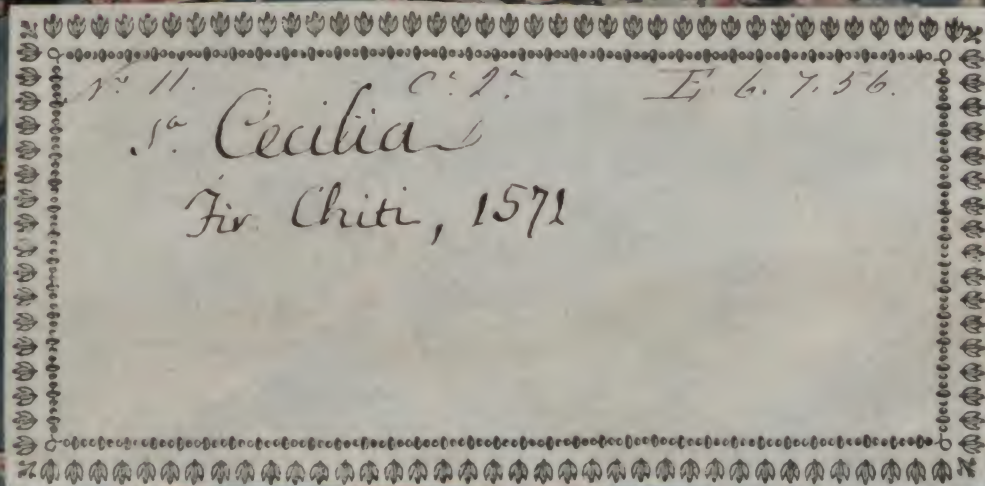 N.º 11. C.ª 2.ª E. 6. 7. 56.
S.ª Cecilia
Fir Chiti, 1571